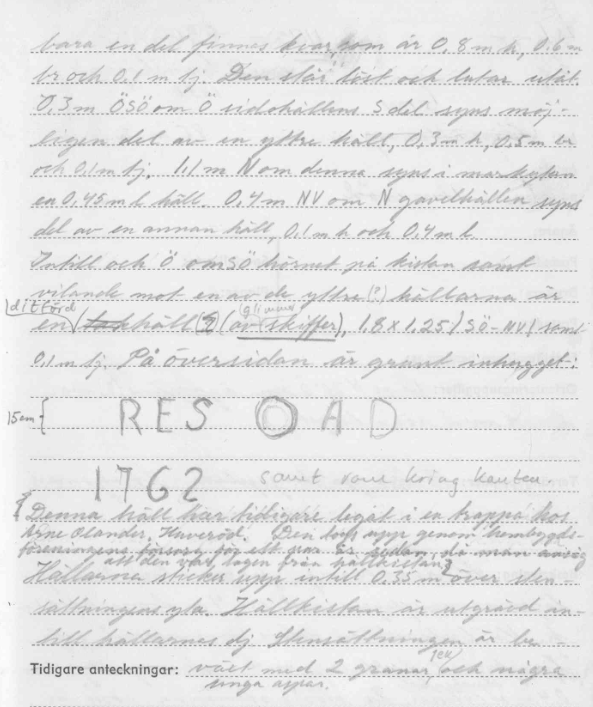 bara en del finnes kvar, som är 0,8 m h, 0,6 m
br och 0,1 m tj. Den står löst och lutar utåt.
0,3 m ÖSÖ om Ö sidohällens S del syns möj-
ligen del av en yttre häll, 0,3 m h, 0,5 m br
och 0,1 m tj. 1,1 m N om denna syns i markytan
en 0,45 m l häll. 0,4 m NV om N gavelhällen syns
del av en annan häll, 0,1 m h och 0,4 m l.
Intill och Ö om SÖ hörnet på kistan samt
vilande mot en av de yttre (?) hällarna är
ditförd
en häll (av glimmer skiffer), 1,8 x 1,25 (SÖ-NV) samt
0,1 m tj. På översidan är grunt inhugget:
15 cm { RES O A D
1762 samt runt kring kanten.
Denna häll har tidigare legat i en trappa hos
Arne Olander, Haveröd. Den togs upp genom hembygds-
föreningens försorg för ett par år sedan, då man ansåg
att den var tagen från hällkistan}
Hällarna sticker upp intill 0,35 m över sten-
sättningens yta. Hällkistan är utgrävd in-
till hällarnas dj. Stensättningen är be-
Tidigare anteckningar: växt med 2 granar, 1 en, och några
unga aspar.